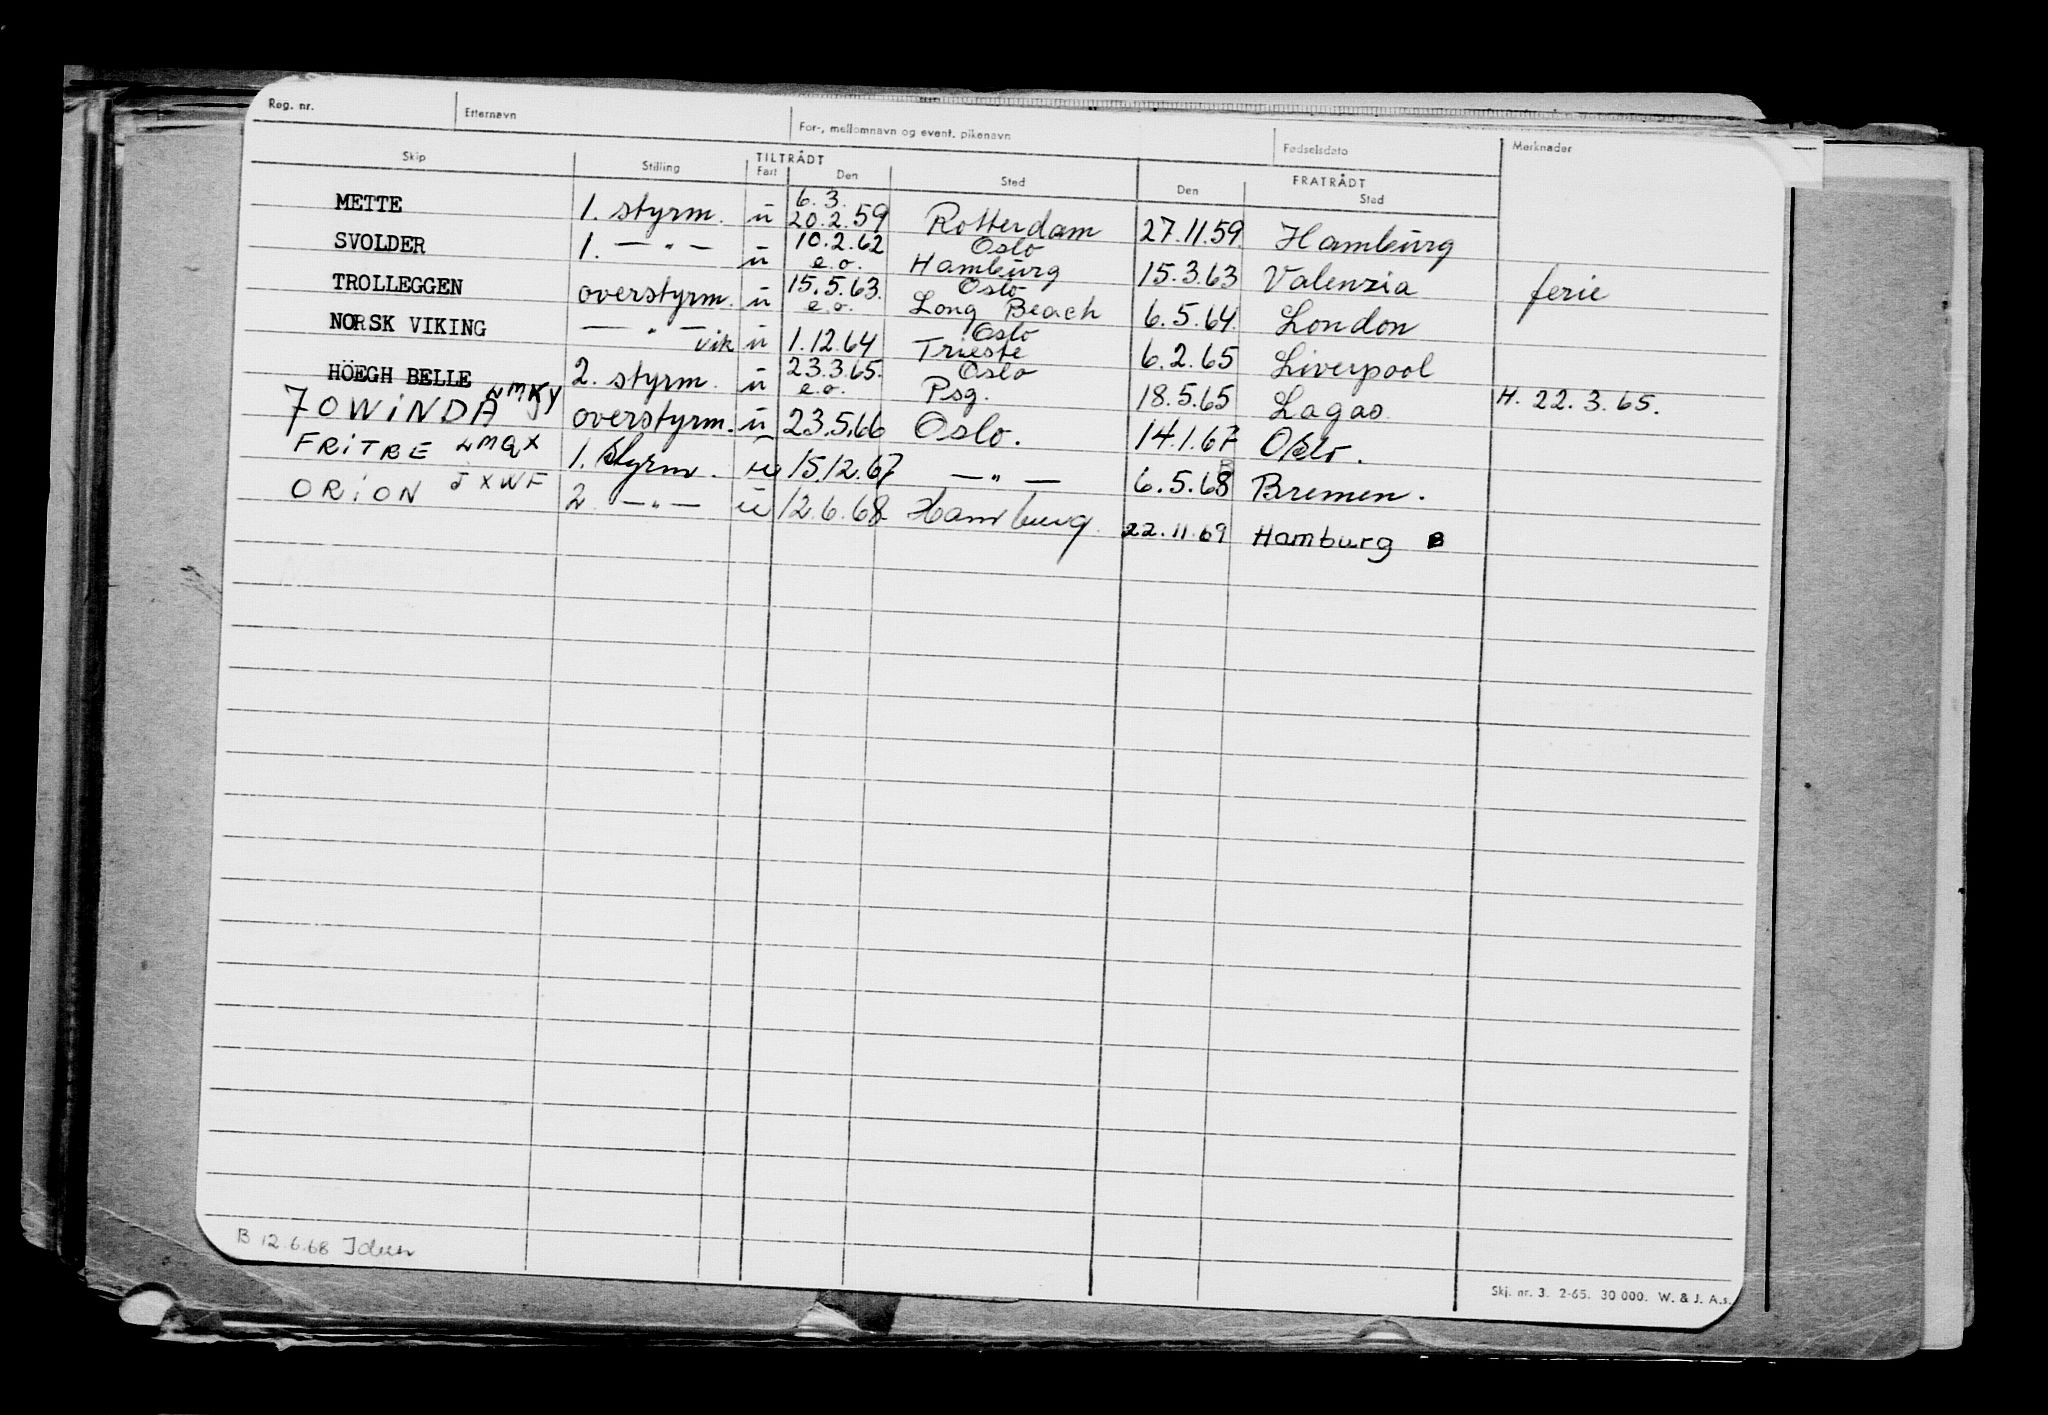 Reg. nr. Etternavn For-, mellomnavn og event. pikenavn Fødselsdato Merknader
TILTRÅDT FRATRÅDT
Skip Stilling Fart Den Sted Den Sted
METTE 1. styrm. u 6.3. 20.2.59 Rotterdam 27.11.59 Hamburg
SVOLDER 1. — " — u 10.2.62 Oslo
u e.o. Hamburg 15.3.63 Valenzia ferie
TROLLEGGEN overstyrm. u 15.5.63. Oslo
e.o. Long Beach 6.5.64. London
NORSK VIKING — " — vik u 1.12.64 Oslo Trieste 6.2.65 Liverpool
HÖEGH BELLE 2. styrm. u 23.3.65. Oslo
e.o. Psg. 18.5.65 Lagos H. 22.3.65.
JOWINDA overstyrm. u 23.5.66 Oslo. 14.1.67 Oslo.
FRITRE LMQX 1. styrm. u 15.12.67 — " — 6.5.68 Bremen.
ORION JXWF 2. — " — u 12.6.68 Hamburg. 22.11.69 Hamburg B
B 12.6.68
Skj. nr. 3. 2-65. 30 000. W. & J. A.s.